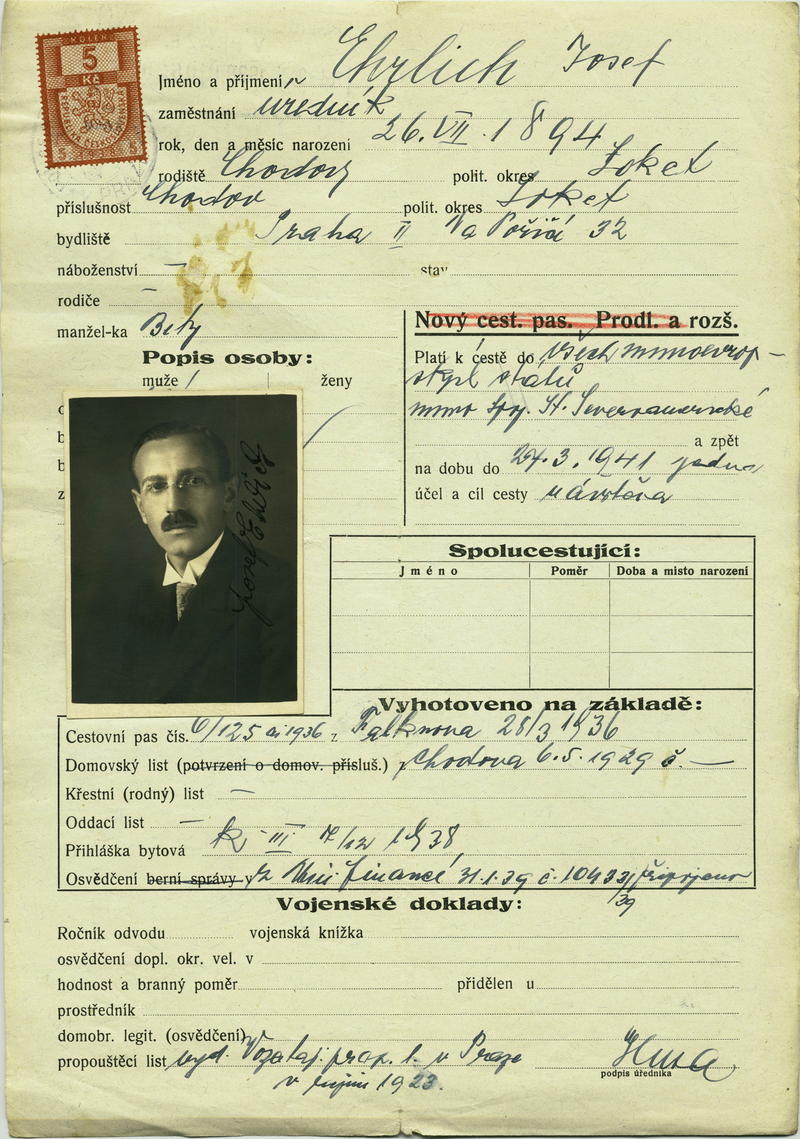 KOLEK
5
Kč
Jméno a příjmení Ehrlich Josef
zaměstnání úředník
rok, den a měsíc narození 26. VII. 1894
rodiště Chodov polit. okres Loket
příslušnost Chodov polit. okres Loket
bydliště Praha II Na Poříčí 32
náboženství — stav
rodiče —
manžel-ka Bety
Nový cest. pas. Prodl. a rozš.
Popis osoby:
muže / ženy
Platí k cestě do všech mimoevrop-
ských států
mimo Spoj. St. Severoamerické
a zpět
na dobu do 27.3.1941
účel a cíl cesty návštěva
Josef Ehrlich
Spolucestující:
Jméno Poměr Doba a místo narození
Vyhotoveno na základě:
Cestovní pas čís. 6/125 ai 1936 z Falknova 28/3 1936
Domovský list (potvrzení o domov. přísluš.) z Chodova 6.5.1929 č. —
Křestní (rodný) list —
Oddací list —
Přihláška bytová k III 7/12 1938
Osvědčení berní správy z Min. financí 31.1.39 č. 10433/39 připojeno
Vojenské doklady:
Ročník odvodu vojenská knížka
osvědčení dopl. okr. vel. v
hodnost a branný poměr přidělen u
prostředník
domobr. legit. (osvědčení)
propouštěcí list vyd. Vozataj. prap. 1. v Praze
v říjnu 1923.
podpis úředníka